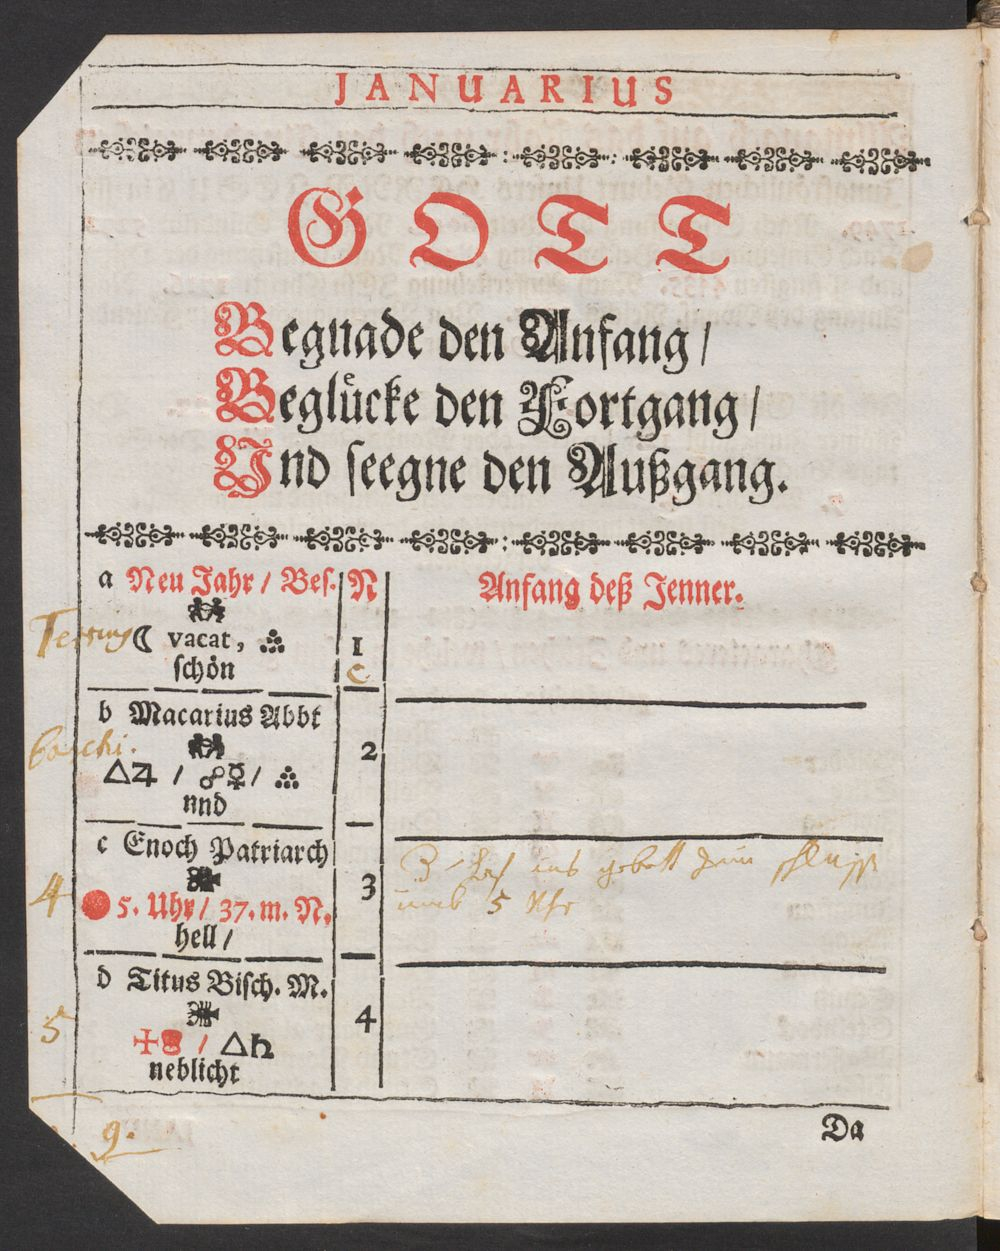 JANUARIUS
GOTT
Begnade den Anfang /
Beglücke den Fortgang /
Und seegne den Außgang.
a Neu Jahr / Bes. N Anfang deß Jenner.
☾ vacat, 1
schön C
b Macarius Abbt
2
△♃ / ☍☿ /
und
c Enoch Patriarch
4 3
5. Uhr / 37. m. N. umb 5 Uhr
hell /
d Titus Bisch. M.
5 4
/ △♄
neblicht
9.
Da